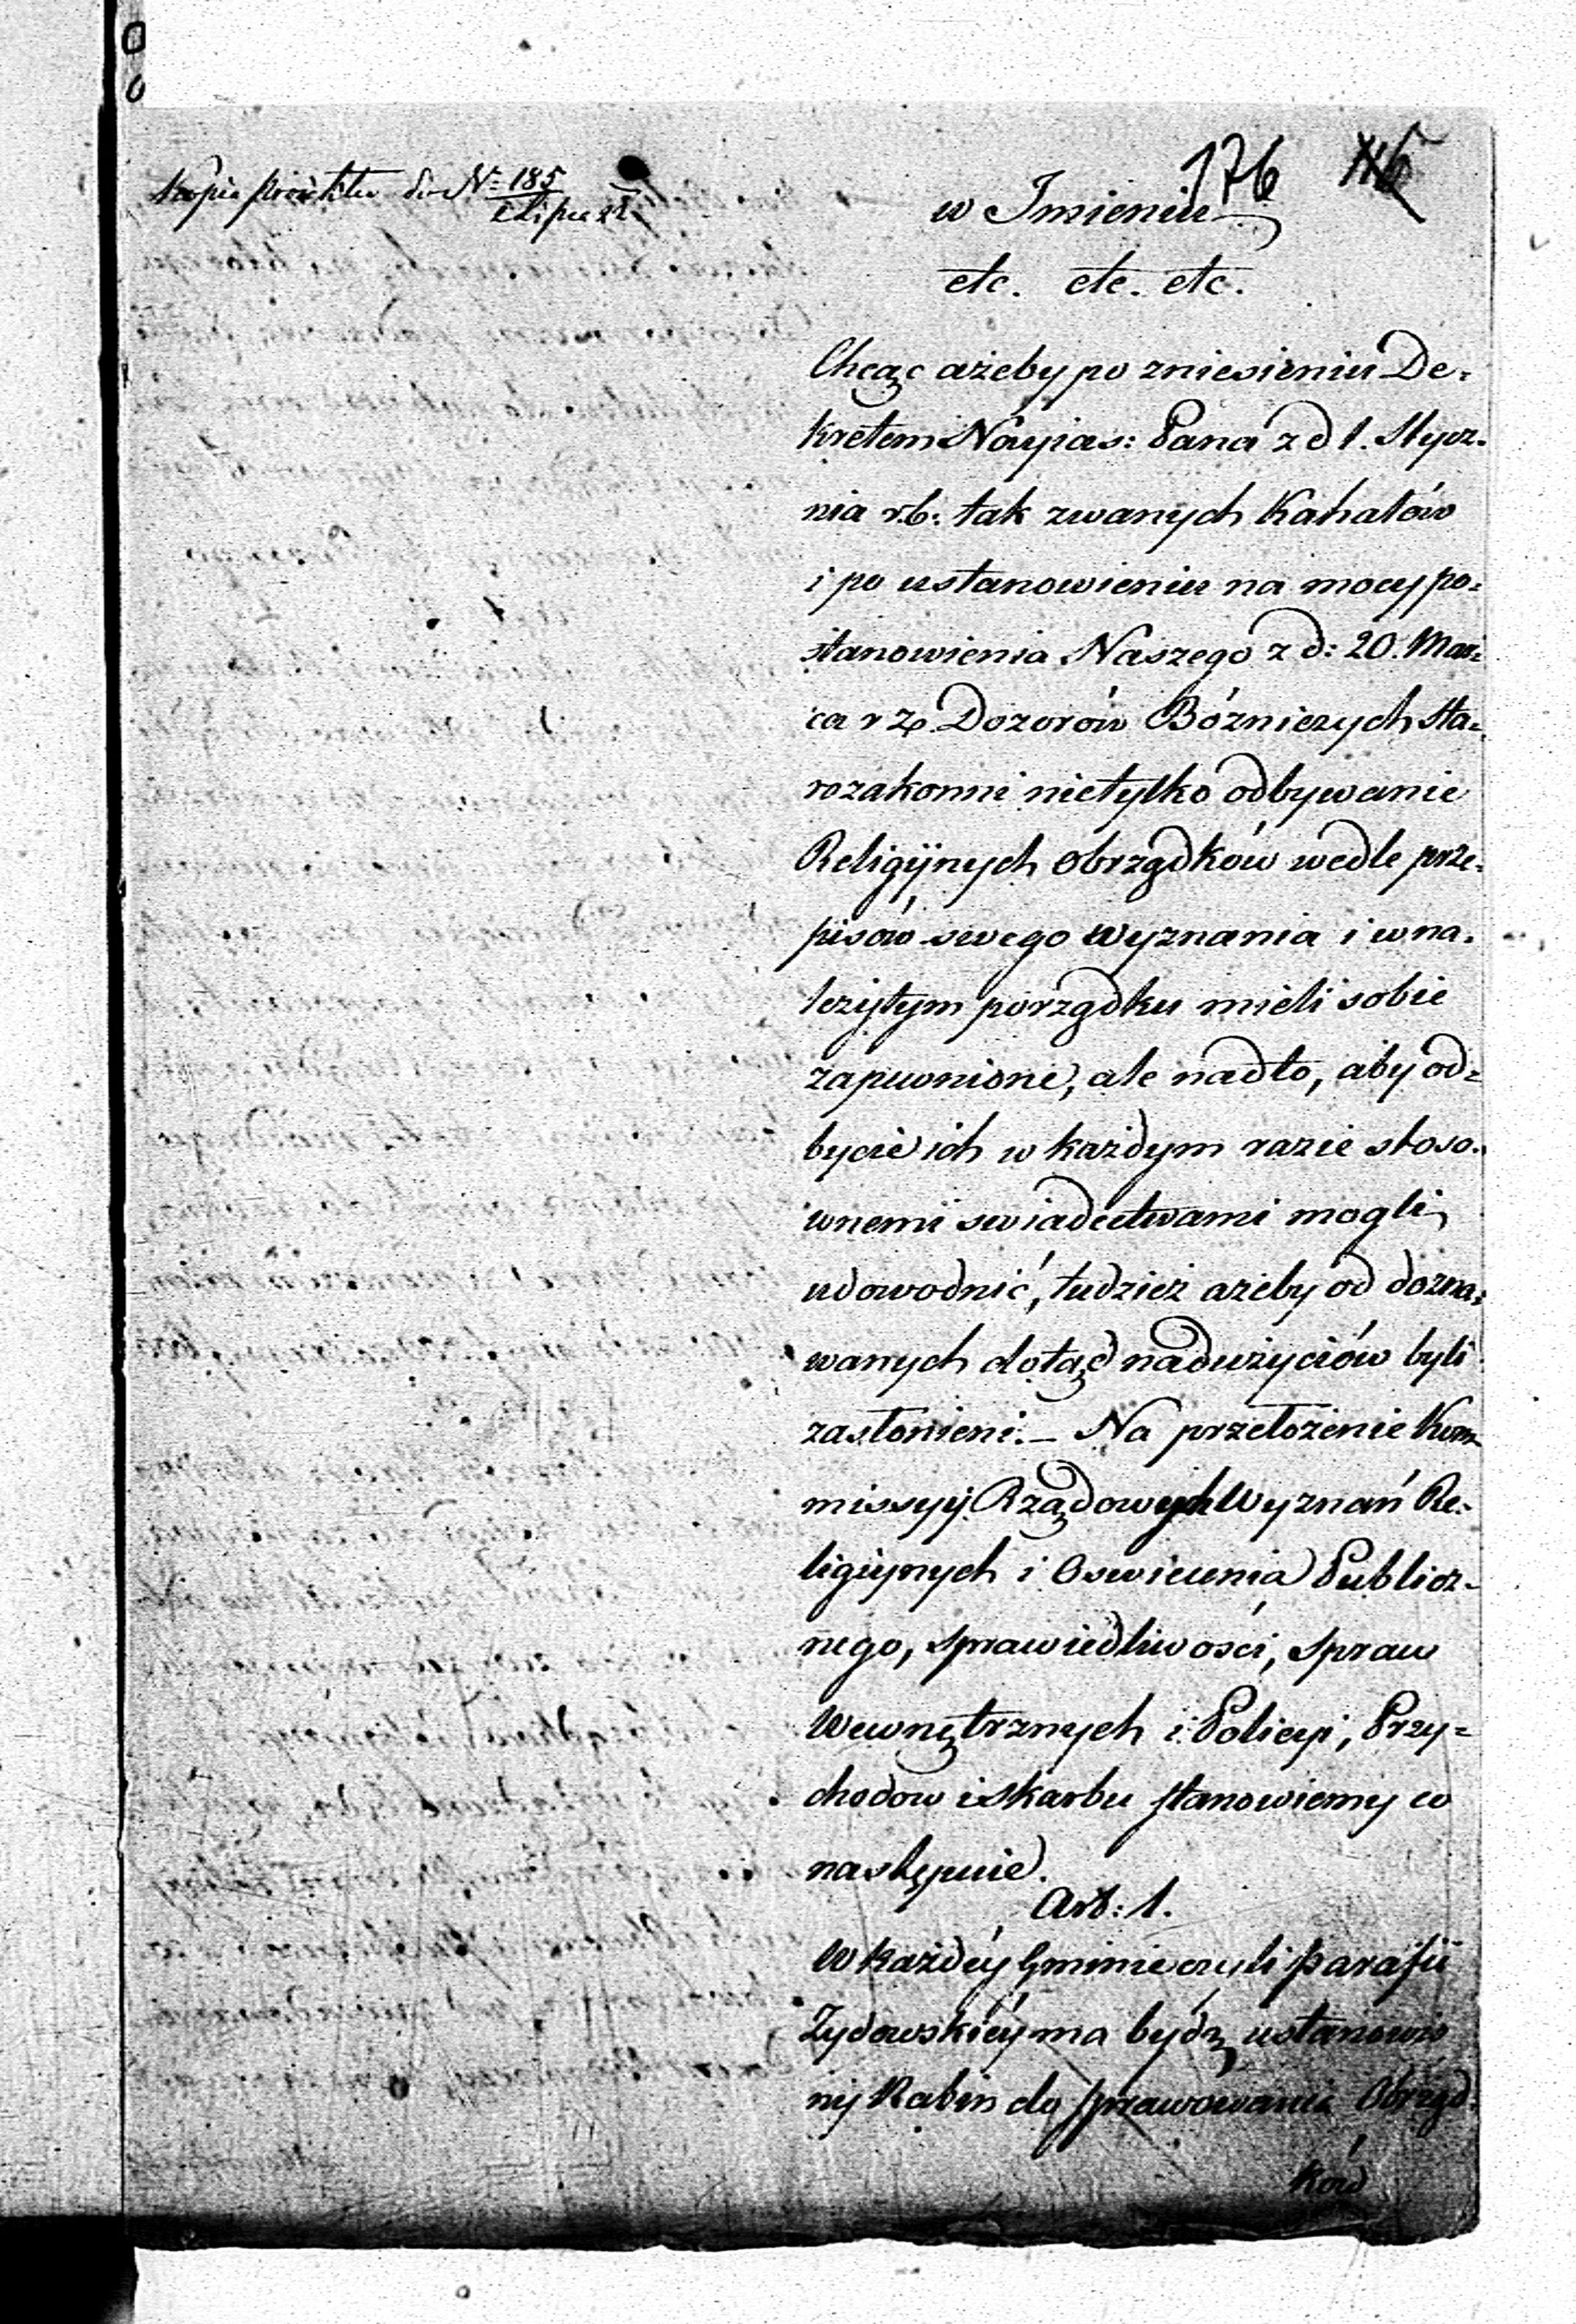 Kopia Proiektu do Nr 185
176
w Imieniu
etc. etc. etc.
Chcąc ażeby po zniesieniu De-
kretem Nayias: Pana z d 1. Stycz-
nia r.b. tak zwanych Kahałów
i po ustanowieniu na mocy po-
stanowienia Naszego z d: 20. Mar-
ca r Dozorów Bóżniczych sta-
rozakonni nietylko odbywanie
Religiynych obrządków wedle prze-
pisów swego wyznania i w na-
leżytym porządku mieli sobie
zapewnione, ale nadto, aby od-
bycie ich w każdym razie stoso-
wnemi swiadectwami mogli
udowodnić, tudzież ażeby od dozna-
wanych dotąd nadużyciów byli
zasłonieni. – Na przełożenie Kom-
missyj Rządowych Wyznań Re-
ligiynych i Oswiecenia Publicz-
nego, Sprawiedliwości, Spraw
Wewnętrznych i Policyi, Przy-
chodow i Skarbu stanowiemy co
następuie.
Art: 1.
W każdéy Gminie czyli parafii
Żydowskiéy ma bydź ustanowio
ny Rabin do sprawowania Obrząd-
ków